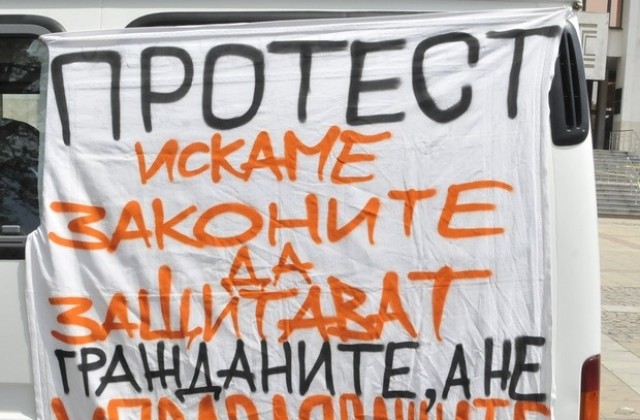 ПРОТЕСТ
ИСКАМЕ
ЗАКОНИТЕ
ДА
ЗАЩИТАВАТ
ГРАЖДАНИТЕ, А НЕ